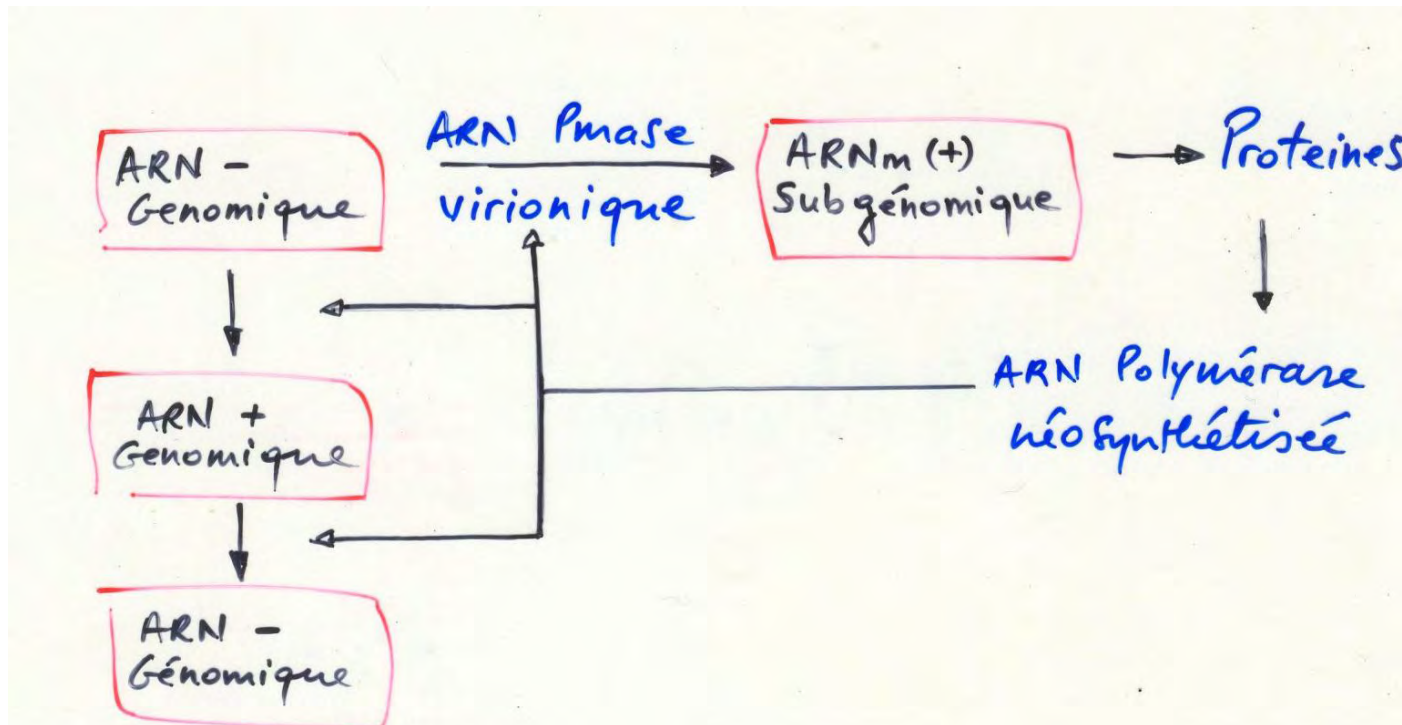 ARN -
Genomique
ARN Pmase
virionique
ARNm (+)
Subgénomique
Proteines
ARN Polymérase
néosynthétiseé
ARN +
Genomique
ARN -
Génomique